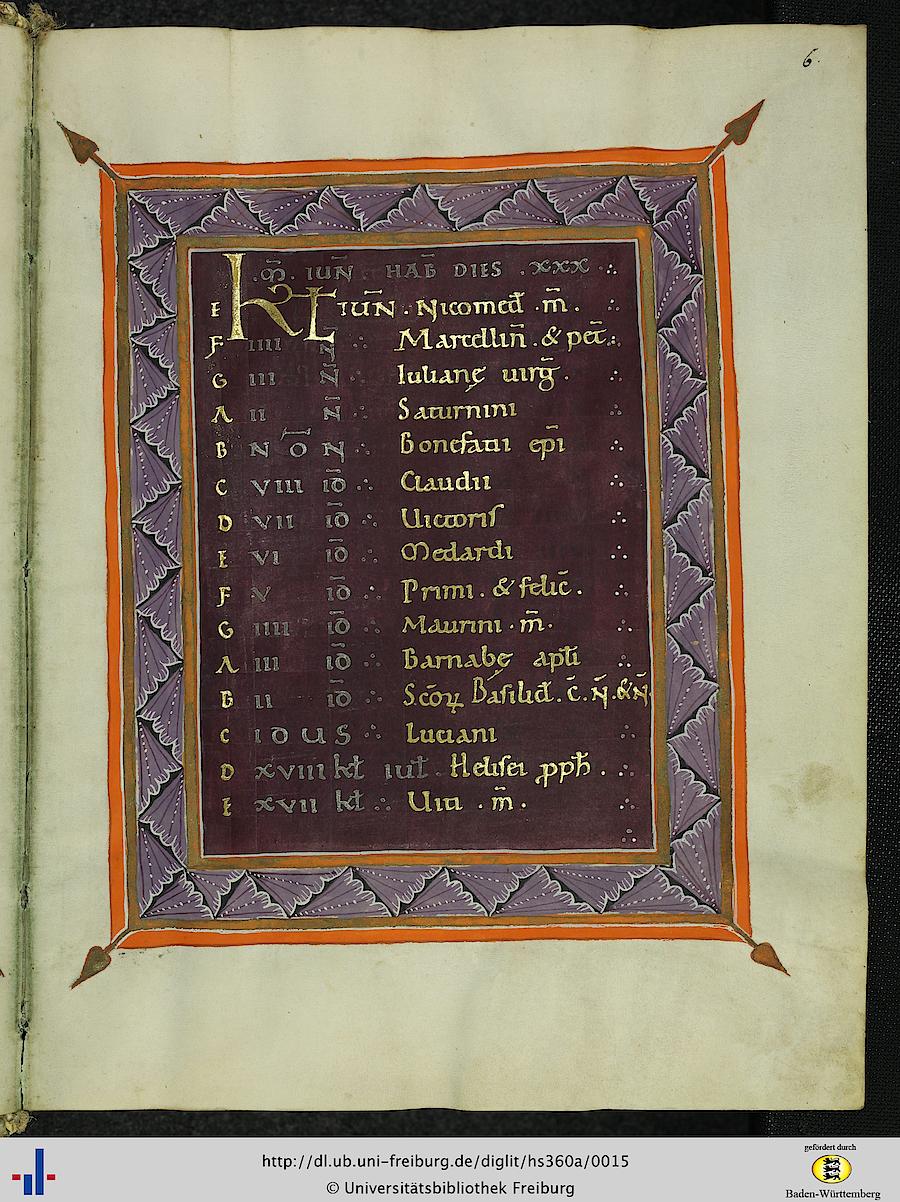 6.
.m̄. IUN̄ HAB̄ DIES .XXX.
E KƗ IUN̄. Nicomed̄ .m̄.
F IIII N̄ Marcellin̄ . & pet̄.
G III N̄ Iulianę uirḡ.
A II N̄ Saturnini
B N Ō N Bonefatii ep̄i
C VIII ID̄ Claudii
D VII ID̄ Uictoris
E VI ID̄ Medardi
F V ID̄ Primi . & felic̄.
G IIII ID̄ Maurini . m̄.
A III ID̄ Barnabę apƚi
B II ID̄ Sc̄oꝝ Basilid̄. C̄. N̄. & N̄
C IDUS Luciani
D XVIII kƚ iuƚ. Helisei ꝓph̄.
E XVII kƚ Uiti . m̄.
gefördert durch
http://dl.ub.uni-freiburg.de/diglit/hs360a/0015
© Universitätsbibliothek Freiburg
Baden-Württemberg